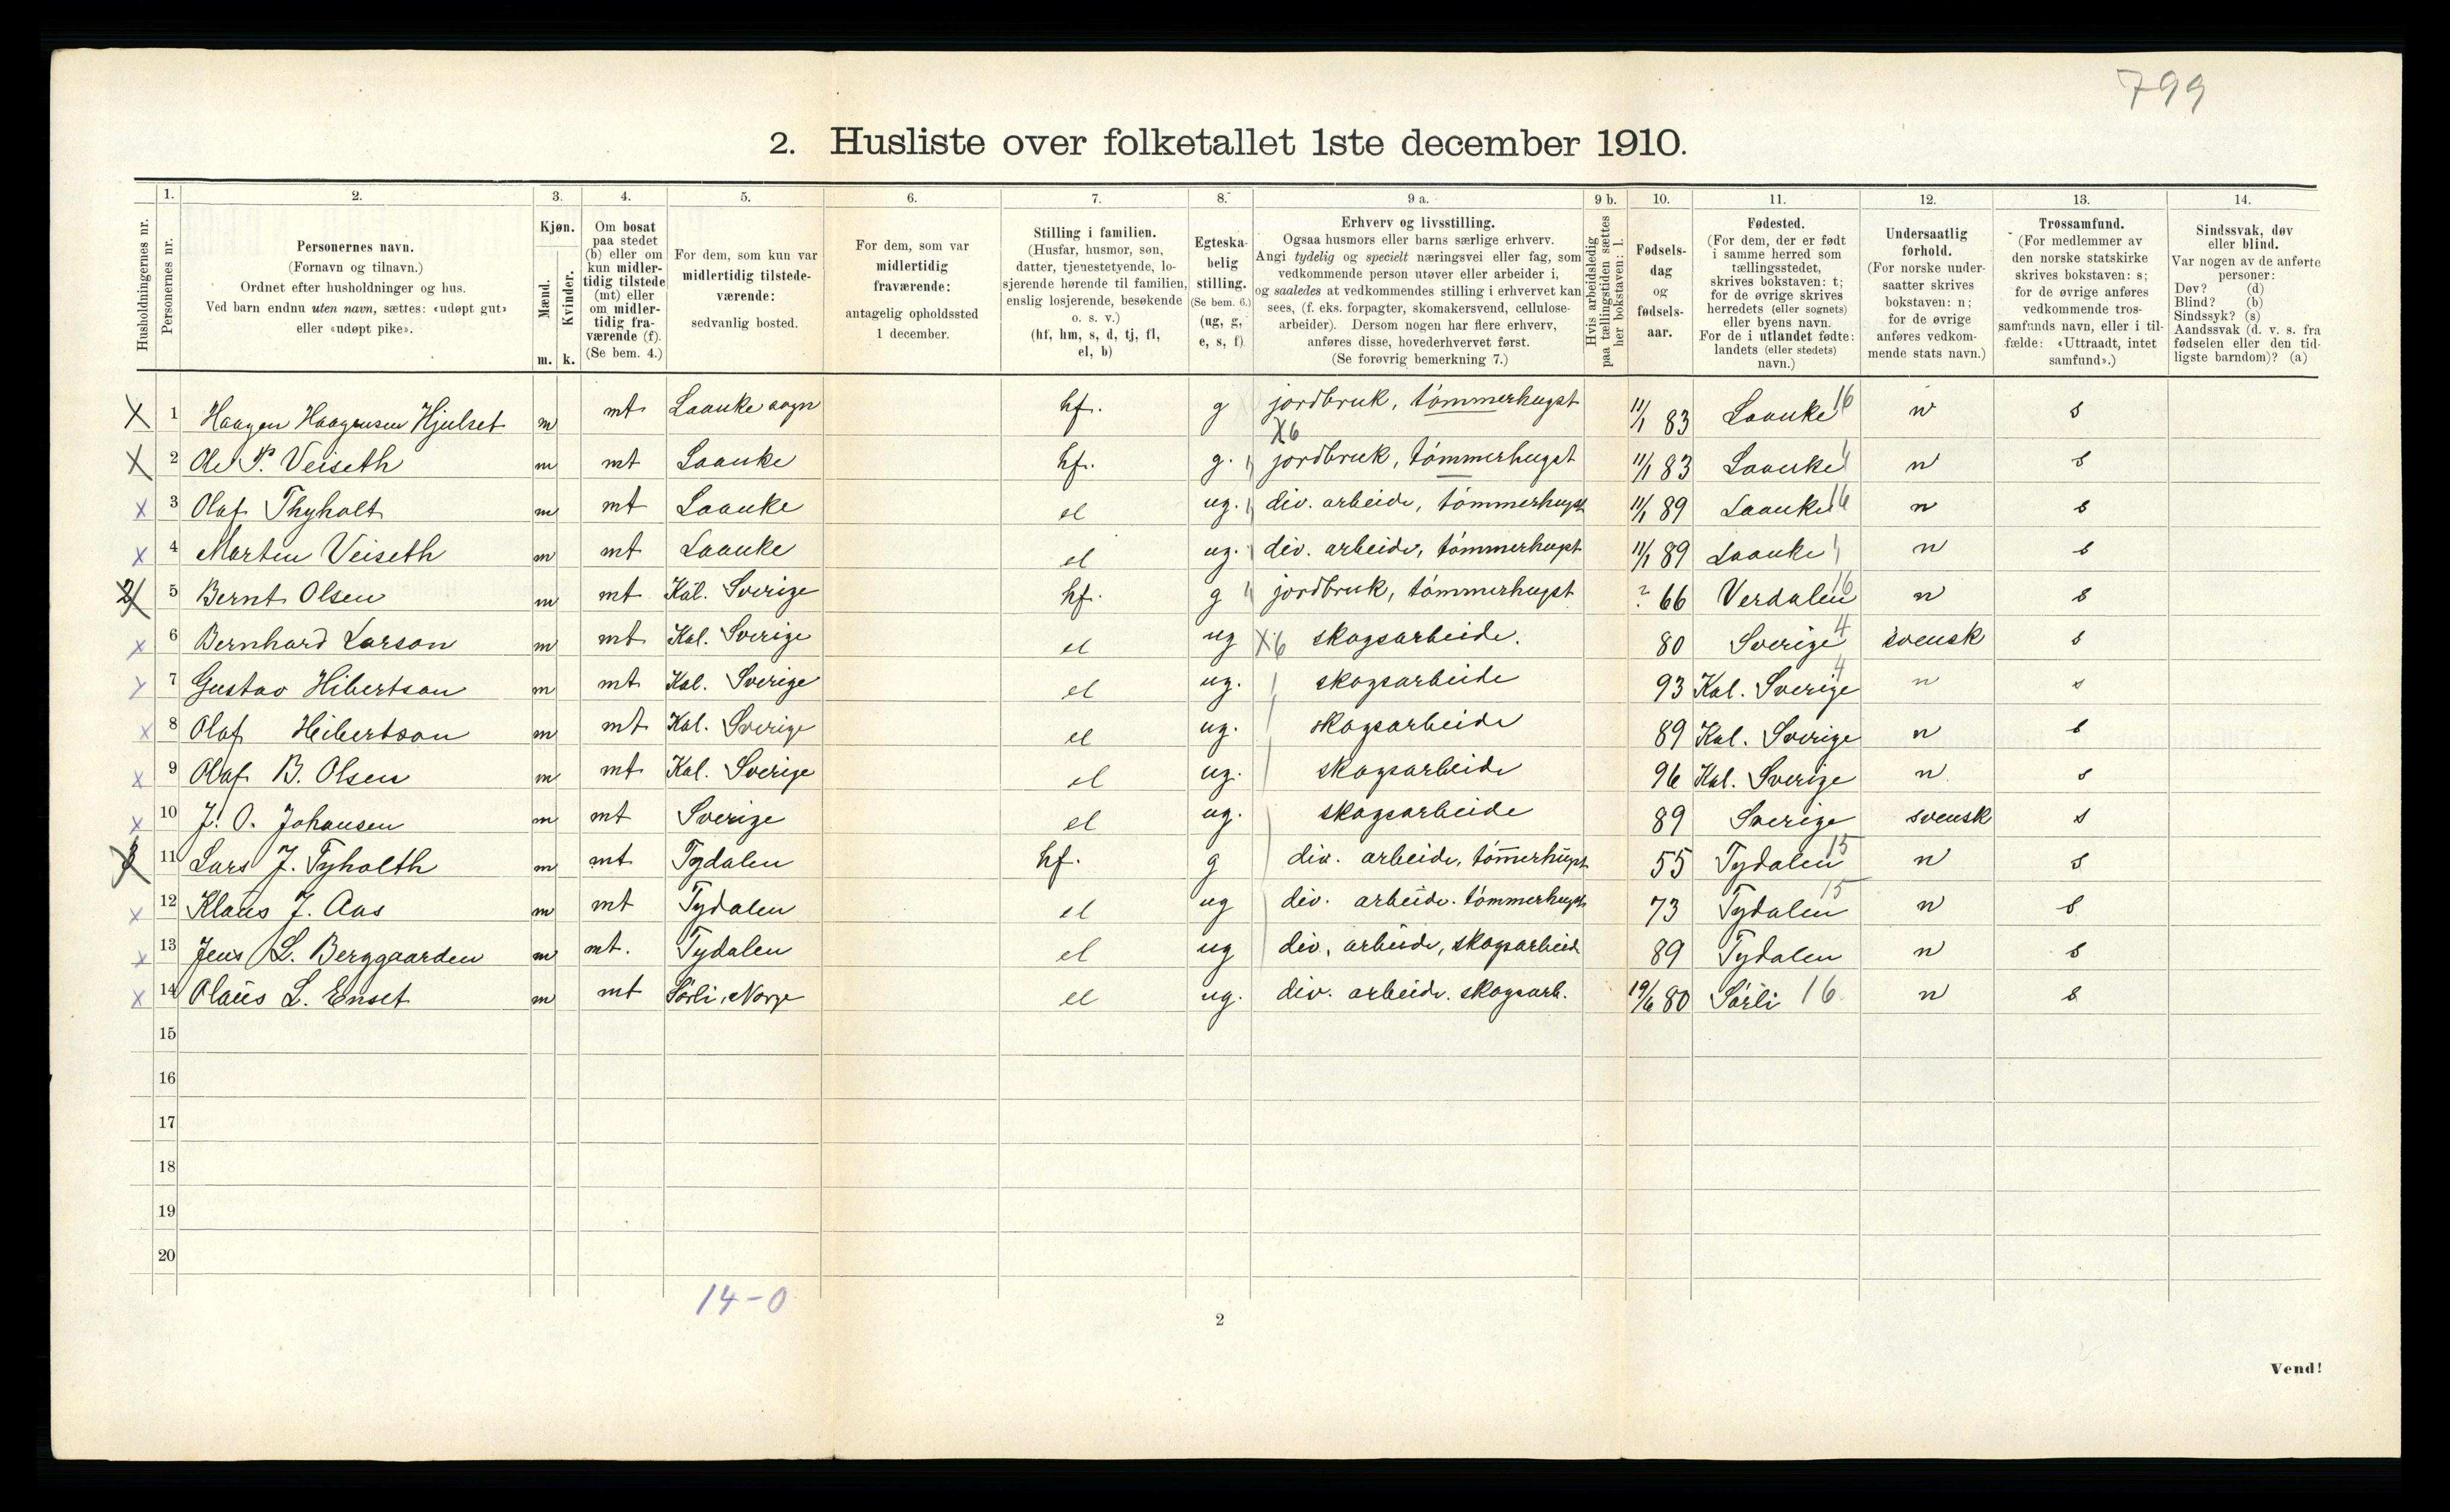 799
2. Husliste over folketallet 1ste december 1910.
Husholdningernes nr.
1. Personernes nr.
2. Personernes navn. (Fornavn og tilnavn.) Ordnet efter husholdninger og hus. Ved barn endnu uten navn, sættes: «udøpt gut» eller «udøpt pike».
3. Kjøn. Mænd. m. Kvinder. k.
4. Om bosat paa stedet (b) eller om kun midlertidig tilstede (mt) eller om midlertidig fraværende (f). (Se bem. 4.)
5. For dem, som kun var midlertidig tilstedeværende: sedvanlig bosted.
6. For dem, som var midlertidig fraværende: antagelig opholdssted 1 december.
7. Stilling i familien. (Husfar, husmor, søn, datter, tjenestetyende, losjerende hørende til familien, enslig losjerende, besøkende o. s. v.) (hf, hm, s, d, tj, fl, el, b)
8. Egteskabelig stilling. (Se bem. 6.) (ug, g, e, s, f)
9 a. Erhverv og livsstilling. Ogsaa husmors eller barns særlige erhverv. Angi tydelig og specielt næringsvei eller fag, som vedkommende person utøver eller arbeider i, og saaledes at vedkommendes stilling i erhvervet kan sees, (f. eks. forpagter, skomakersvend, cellulosearbeider). Dersom nogen har flere erhverv, anføres disse, hovederhvervet først. (Se forøvrig bemerkning 7.)
9 b. Hvis arbeidsledig paa tællingstiden sættes her bokstaven: l.
10. Fødselsdag og fødselsaar.
11. Fødested. (For dem, der er født i samme herred som tællingsstedet, skrives bokstaven: t; for de øvrige skrives herredets (eller sognets) eller byens navn. For de i utlandet fødte: landets (eller stedets) navn.)
12. Undersaatlig forhold. (For norske undersaatter skrives bokstaven: n; for de øvrige anføres vedkommende stats navn.)
13. Trossamfund. (For medlemmer av den norske statskirke skrives bokstaven: s; for de øvrige anføres vedkommende trossamfunds navn, eller i tilfælde: «Uttraadt, intet samfund».)
14. Sindssvak, døv eller blind. Var nogen av de anførte personer: Døv? (d) Blind? (b) Sindssyk? (s) Aandssvak (d. v. s. fra fødselen eller den tidligste barndom)? (a)
X 1 Haagen Haagensen Hjulset m mt Laanke sogn hf. g jordbruk, tømmerhugst 11/1 83 Laanke 16 n s
X6
X 2 Ole P. Veiseth m mt Laanke hf. g. jordbruk, tømmerhugst 11/1 83 Laanke n s
x 3 Olaf Thyholt m mt Laanke el ug. div. arbeide, tømmerhugst 11/1 89 Laanke 16 n s
x 4 Marten Veiseth m mt Laanke el ug. div. arbeide, tømmerhugst 11/1 89 Laanke n s
2 5 Bernt Olsen m mt Kal. Sverige hf. g jordbruk, tømmerhugst ? 66 Verdalen 16 n s
x 6 Bernhard Larson m mt Kal. Sverige el ug X6 skogsarbeide. 80 Sverige 4 svensk s
x 7 Gustav Hibertson m mt Kal. Sverige el ug. skogsarbeide 93 Kal. Sverige 4 n s
x 8 Olaf Heibertson m mt Kal. Sverige el ug. skogsarbeide 89 Kal. Sverige n s
x 9 Olaf B. Olsen m mt Kal. Sverige el ug. skogsarbeide 96 Kal. Sverige n s
x 10 J. O. Johansen m mt Sverige el ug. skogsarbeide 89 Sverige svensk s
3 11 Lars J. Tyholth m mt Tydalen hf. g div. arbeide, tømerhugst 55 Tydalen 15 n s
x 12 Klaus J. Aas m mt Tydalen el ug div. arbeide. tømmerhugst 73 Tydalen 15 n s
x 13 Jens L. Berggaarden m mt. Tydalen el ug div. arbeide, skogsarbeide 89 Tydalen n s
x 14 Olaus L. Enset m mt Sörli, Norge el ug. div. arbeide. skogsarb. 19/6 80 Sörli 16. n s
15
16
17
18
19
20
14-0
2
Vend!